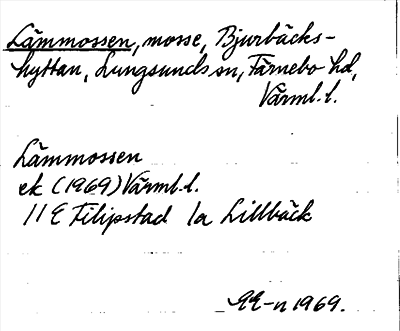 Lämmossen, mosse, Bjurbäcks-
hyttan, Lungsunds sn, Färnebo hd,
Värml. l.
Lämmossen
ek (1969) Värml. l.
11 E Filipstad 1a Lillbäck
1969.